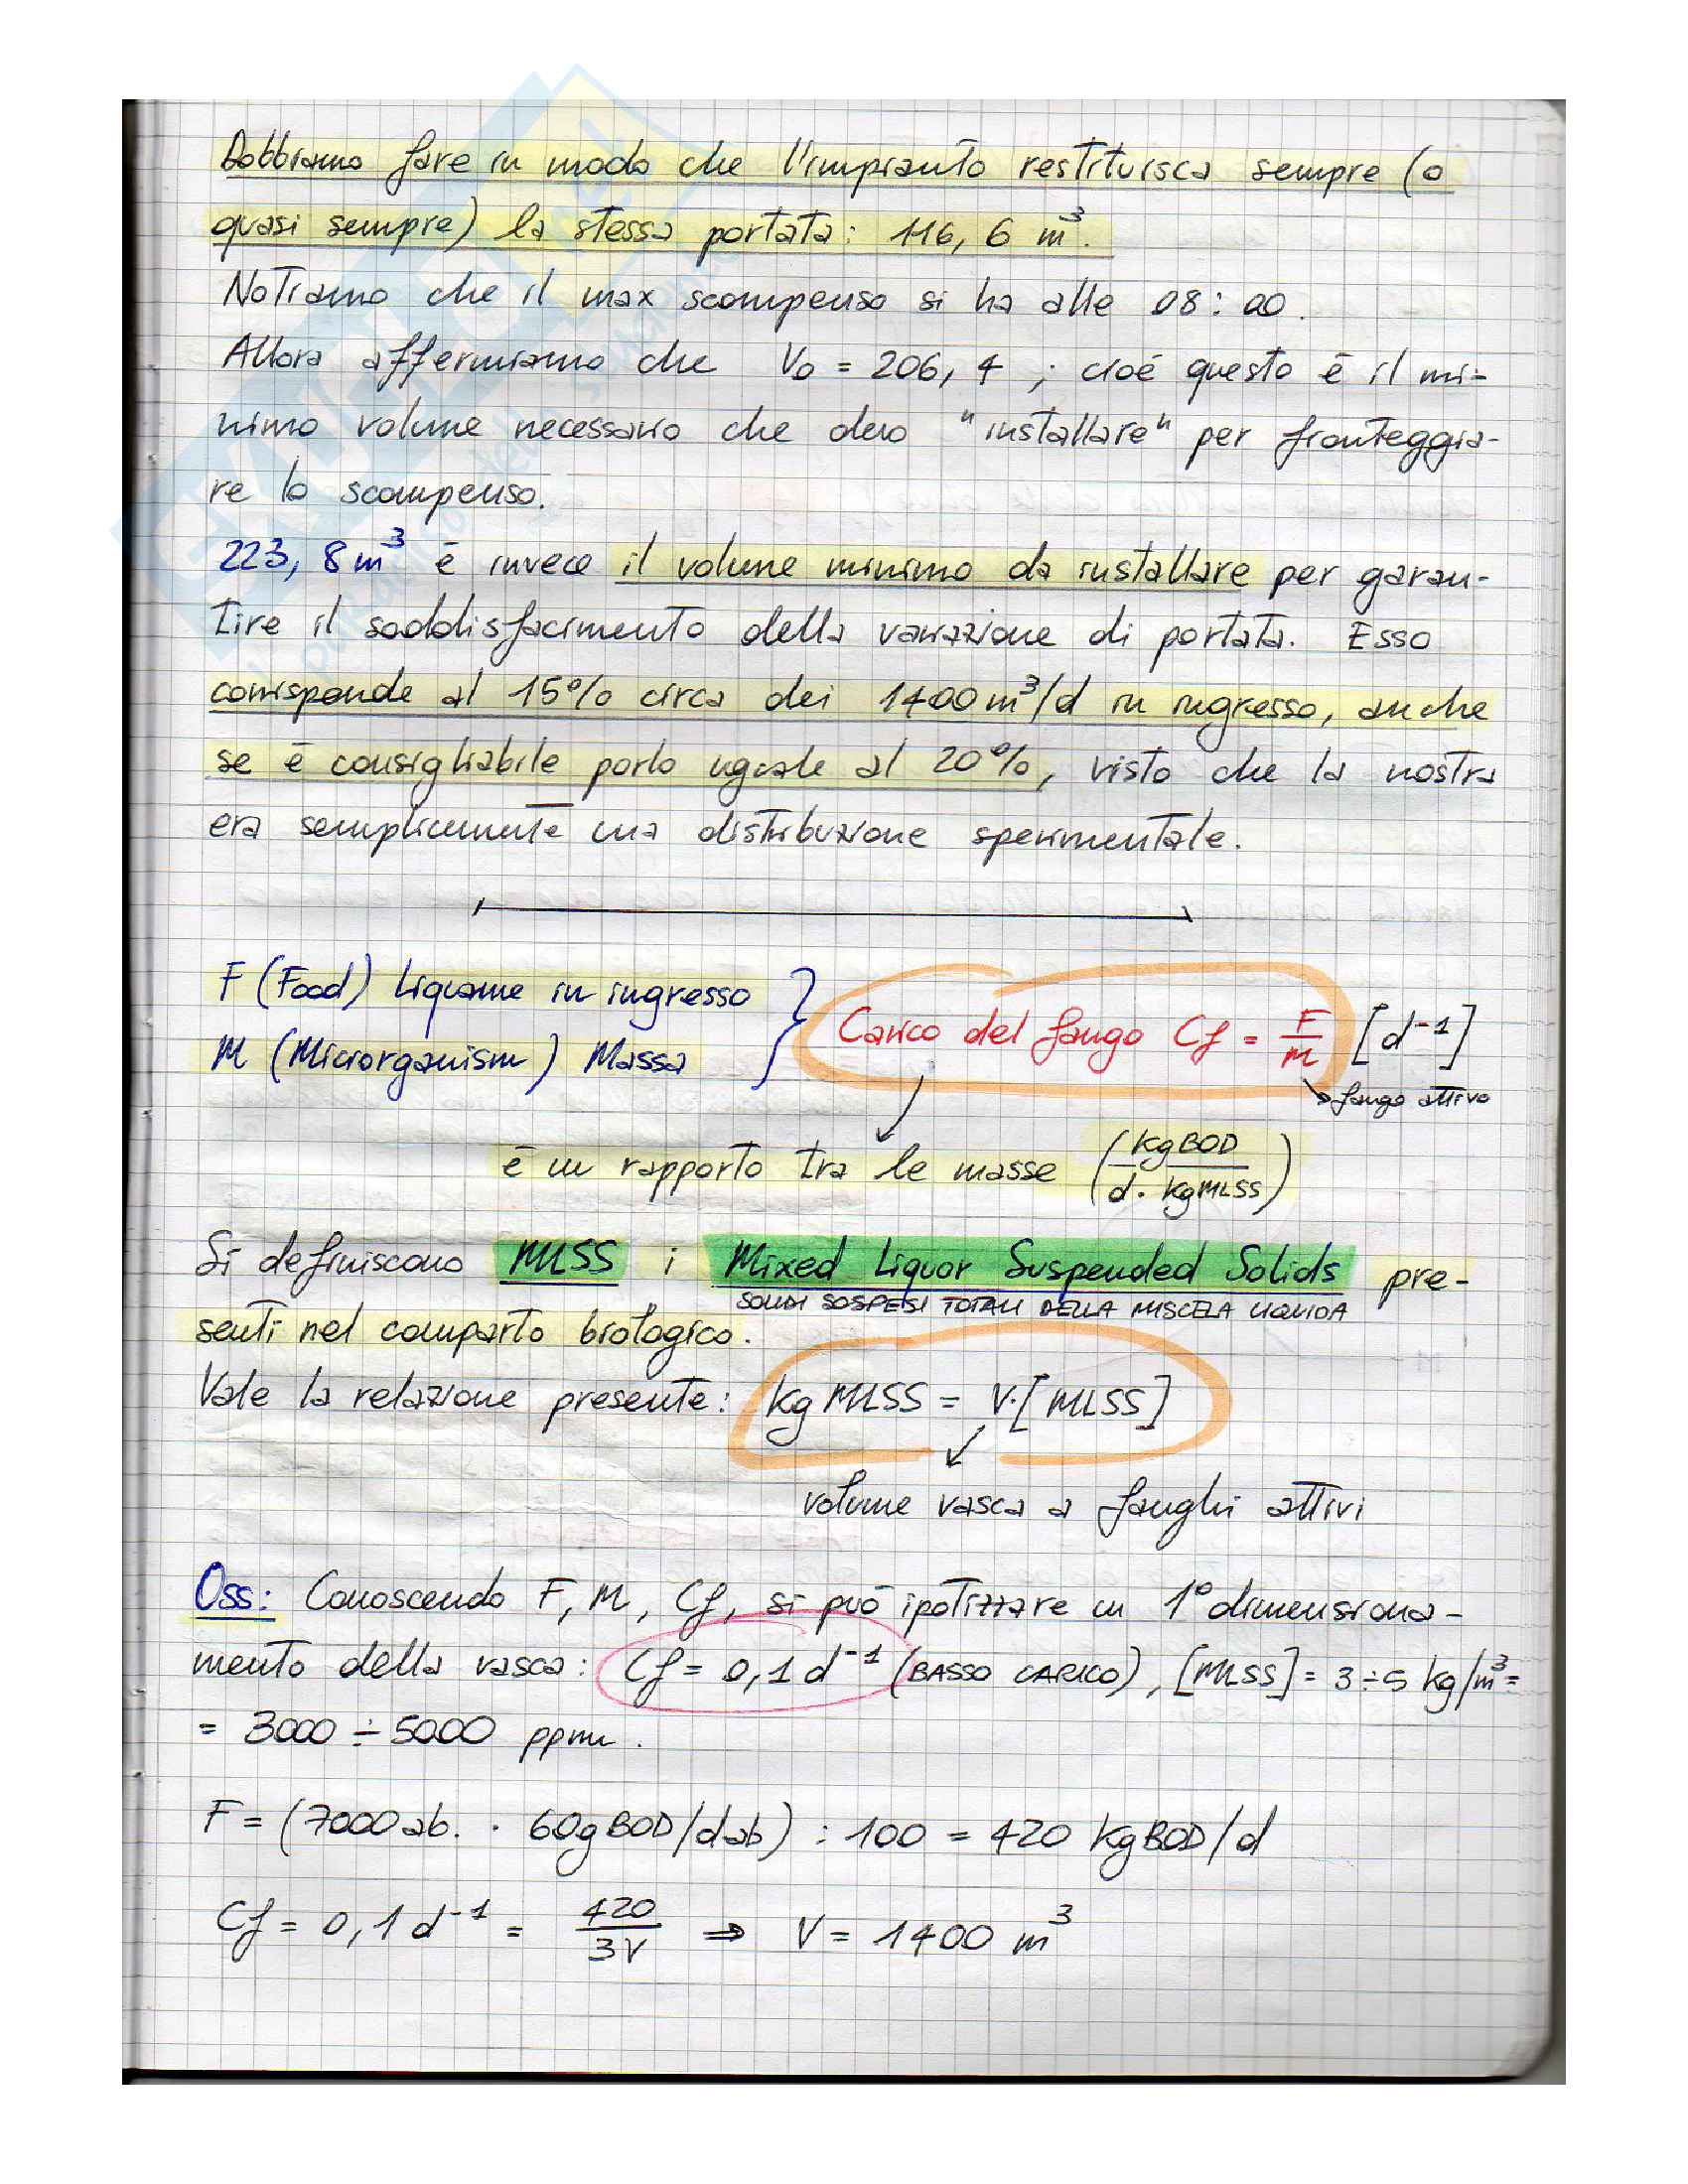 Dobbiamo fare in modo che l'impianto restituisca sempre (o
quasi sempre) la stessa portata: 116,6 m³.
Notiamo che il max scompenso si ha alle 08:00.
Allora affermiamo che V₀ = 206,4 ; cioè questo è il mi-
nimo volume necessario che devo "installare" per fronteggia-
re lo scompenso.
223,8 m³ è invece il volume minimo da installare per garan-
tire il soddisfacimento della variazione di portata. Esso
corrisponde al 15% circa dei 1400 m³/d in ingresso, anche
se è consigliabile porlo uguale al 20%, visto che la nostra
era semplicemente una distribuzione sperimentale.
F (Food) Liquame in ingresso
M (Microrganism) Massa
Carico del fango Cf = F/m [d⁻¹]
fango attivo
è un rapporto tra le masse (kgBOD / d · kgMLSS)
Si definiscono MLSS i Mixed Liquor Suspended Solids pre-
SOLIDI SOSPESI TOTALI DELLA MISCELA LIQUIDA
senti nel comparto biologico.
Vale la relazione presente: kg MLSS = V·[MLSS]
volume vasca a fanghi attivi
Oss: Conoscendo F, M, Cf, si può ipotizzare un 1° dimensiona-
mento della vasca: Cf = 0,1 d⁻¹ (BASSO CARICO), [MLSS] = 3÷5 kg/m³ =
= 3000 ÷ 5000 ppm.
F = (7000 ab. · 60g BOD/d ab) : 100 = 420 kg BOD/d
Cf = 0,1 d⁻¹ = 420/3V ⇒ V = 1400 m³